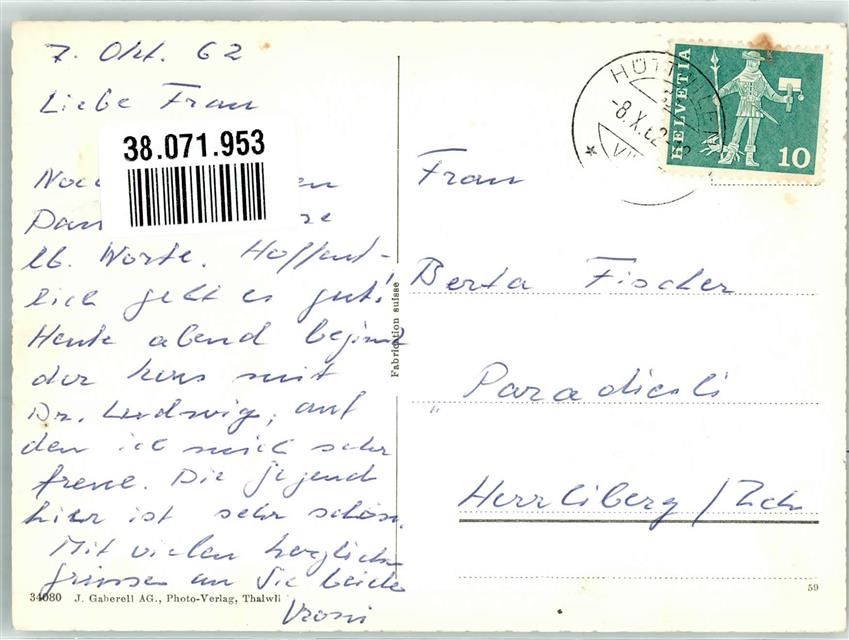 7. Okt. 62
Liebe Frau
38.071.953
lb. Worte. Hoffent-
lich geht es gut!
Heute abend beginnt
der Kurs mit
Dr. Ludwig, auf
den ich mich sehr
freue. Die Gegend
hier ist sehr schön.
Mit vielen herzlichen
Grüssen an Sie beide
Vroni
34080 J. Gaberell AG., Photo-Verlag, Thalwil
Fabrication suisse
HÜTTWILEN
-8.X.62
HELVETIA
10
Frau
Berta Fischer
"Paradiesli
Herrliberg / Zch
59